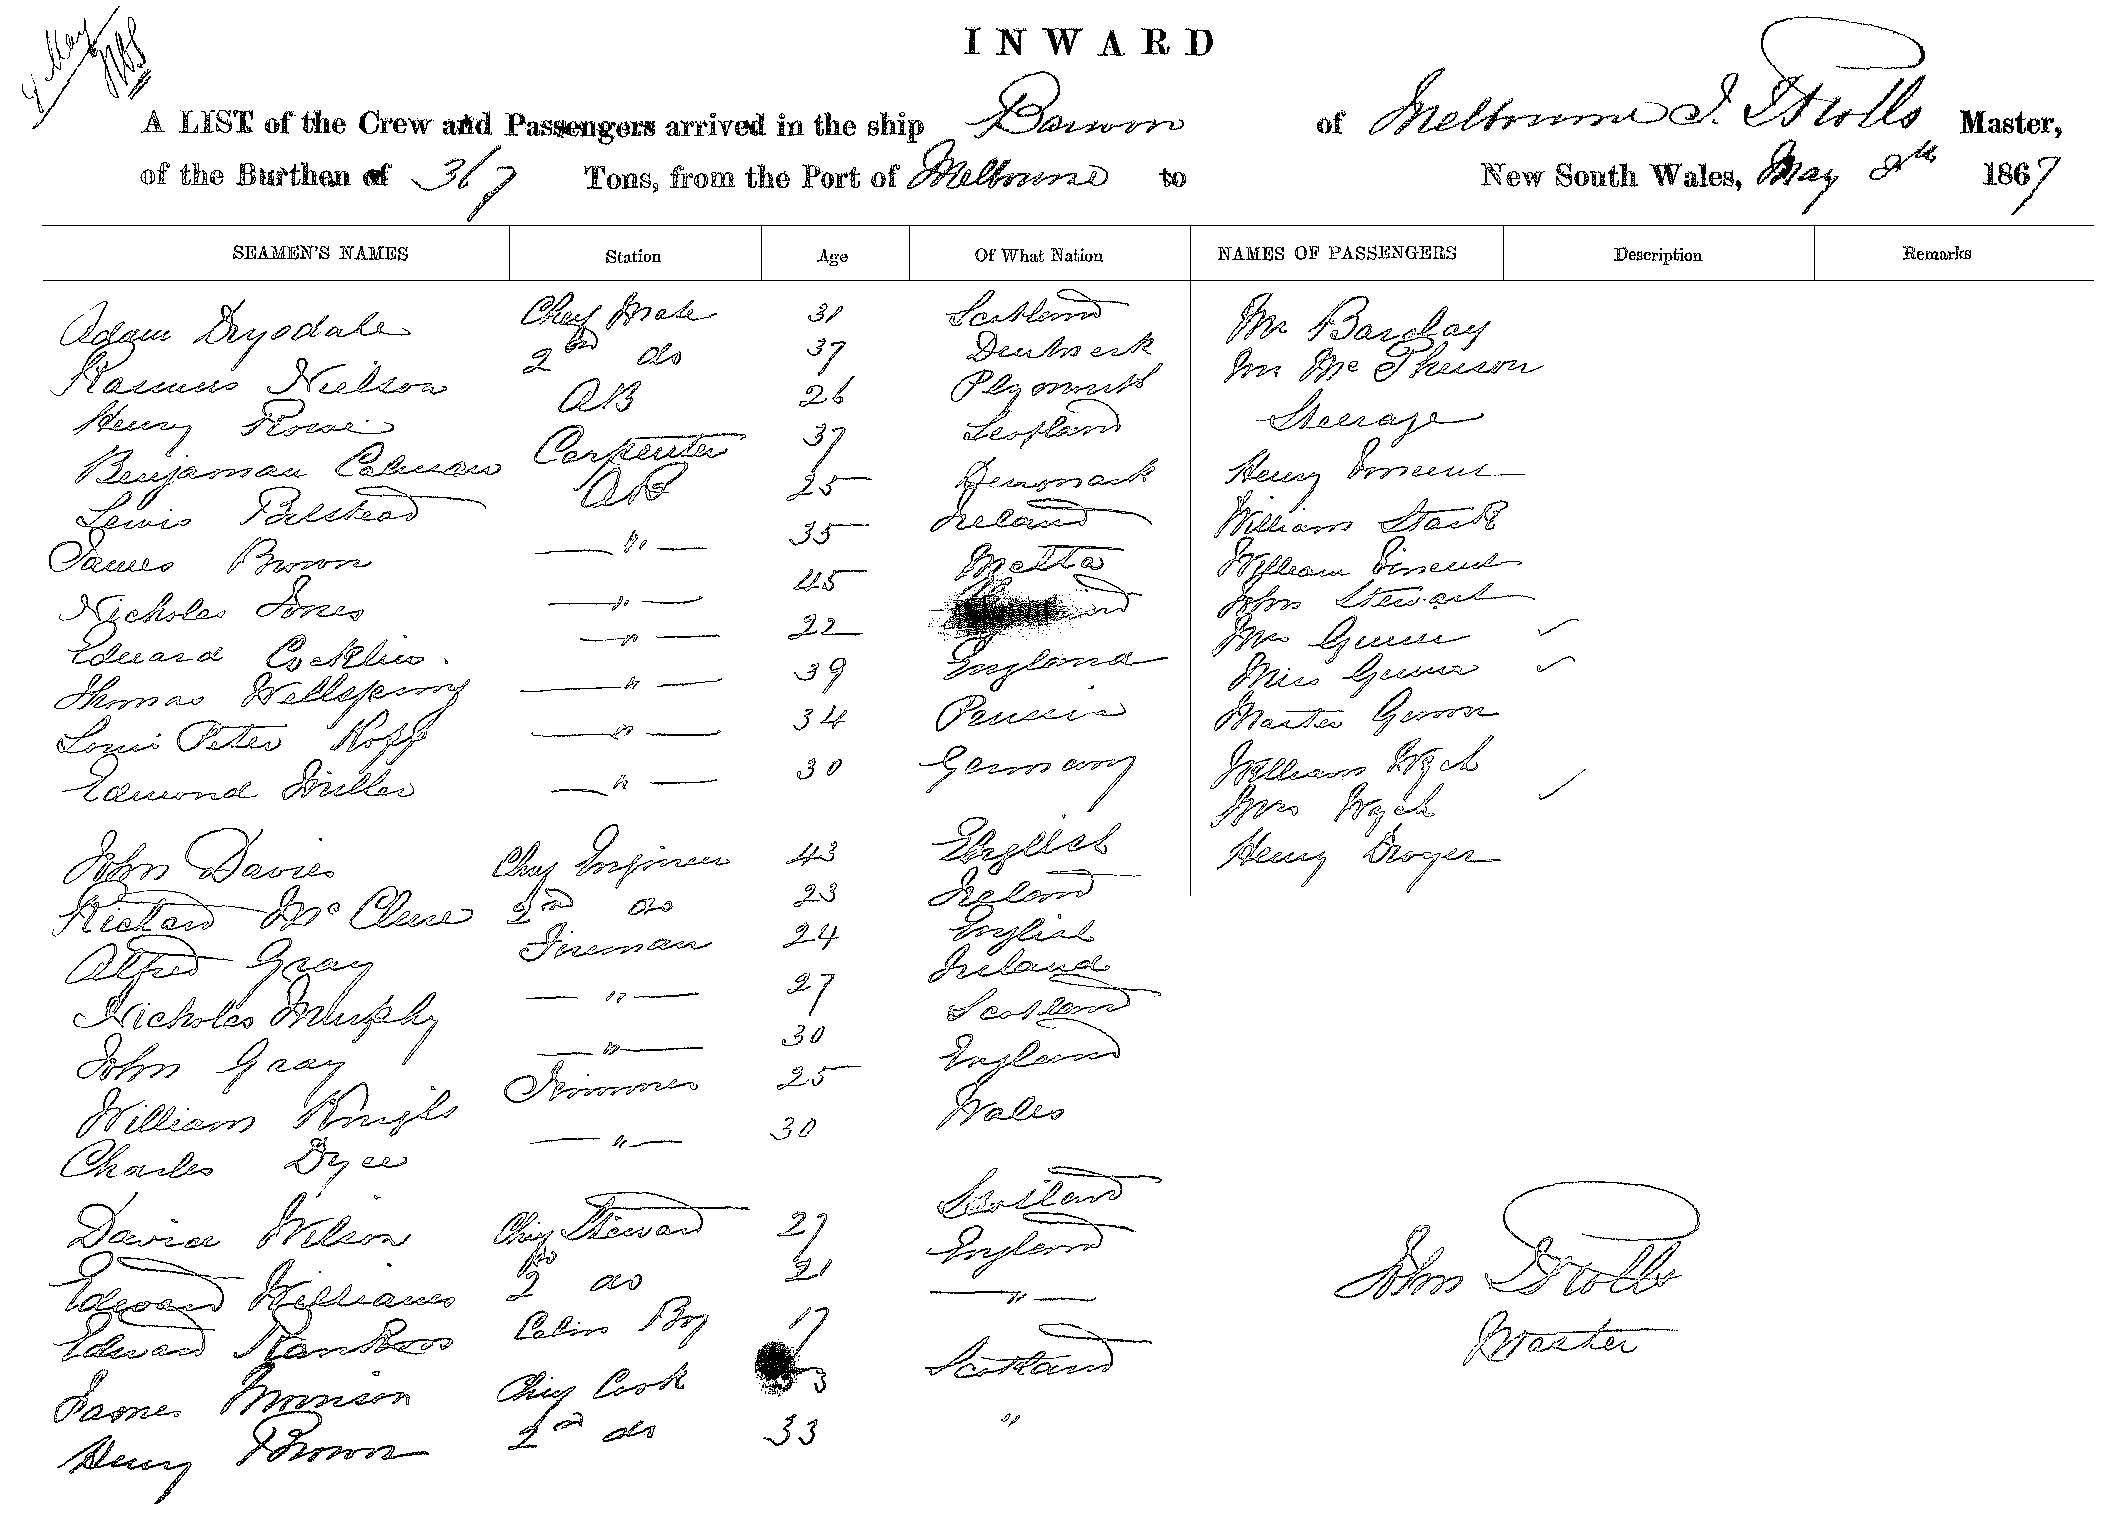 8 May
INWARD
A LIST of the Crew and Passengers arrived in the ship Barwon of Melbourne J. Master,
of the Burthen of 367 Tons, from the Port of Melbourne to New South Wales, May 8th 1867
SEAMEN'S NAMES Station Age Of What Nation NAMES OF PASSENGERS Description Remarks
Adam Drysdale Chief Mate 31 Scotland Mr Barclay
Rasmus Nielson 2nd do 37 Denmark Mr McPherson
Henry Rowe AB 26 Plymouth Steerage
Benjaman Colman Carpenter 37 Scotland Henry Vincent
Lewis Belstead AB 25 Denmark William Stark
James Brown — " — 35 Ireland William Vincent
Nicholas Jones — " — 45 Malta John Stewart
Edward Cocklin — " — 22 Mrs Gunn ✓
Thomas Wellspring — " — 39 England Miss Gunn ✓
Louis Peter Kopp — " — 34 Prussia Master Gunn
Edmond Miller — " — 30 Germany William Wych
Mrs Wych ✓
John Davies Chief Engineer 43 English Henry Droyer
Richard McClure 2nd do 23 Ireland
Alfred Gray Fireman 24 English
Nicholas Murphy — " — 27 Ireland
John Gray — " — 30 Scotland
William Knight Trimmer 25 England
Charles Dyce — " — 30 Wales
David Wilson Chief Steward 27 Scotland
Edward Williams 2nd do 21 England
Edward Cabin Boy 17 — " —
James Morrison Chief Cook 33 Scotland
Henry Brown 2nd do 33 "
John
Master